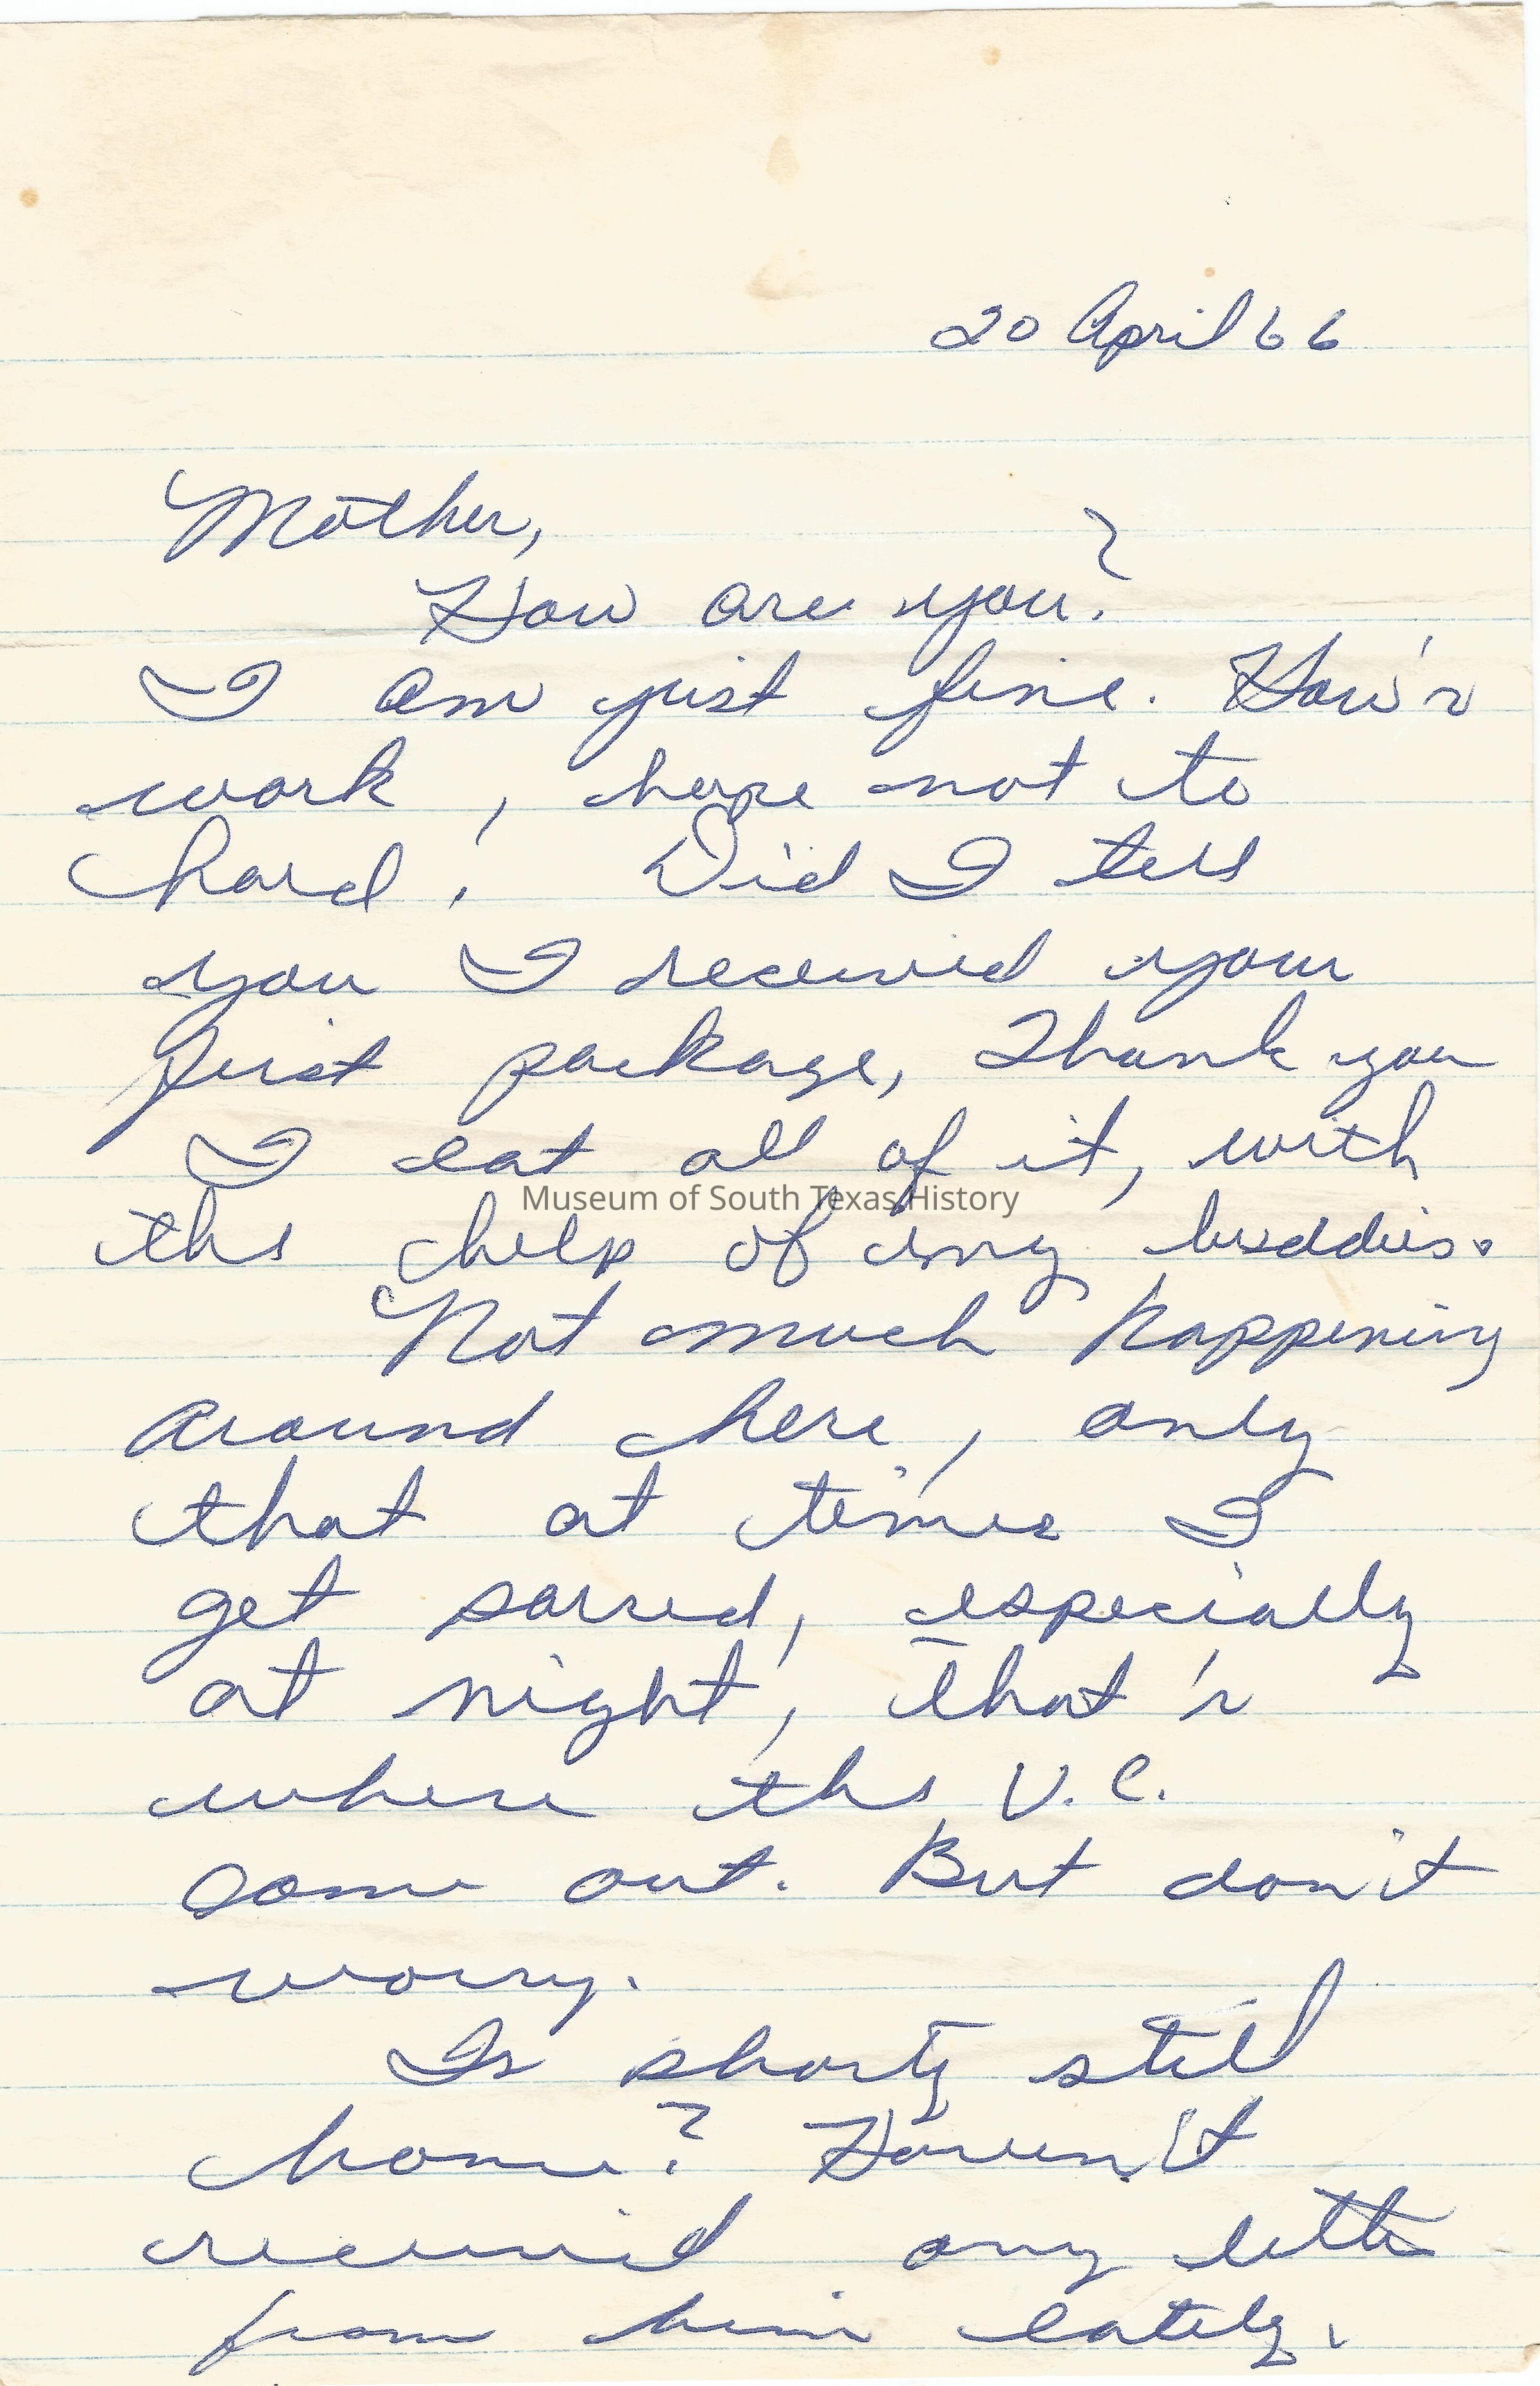 20 April 66
Mother,
How are you?
I am just fine. How's
work, hope not to
hard. Did I tell
you I received your
first package, Thank you
I eat all of it, with
the help of my buddies.
Museum of South Texas History
Not much happening
around here, only
that at times I
get scared, especially
at night, that's
where the V.C.
come out. But don't
worry.
Is shorty still
home? Haven't
received any letter
from him lately.